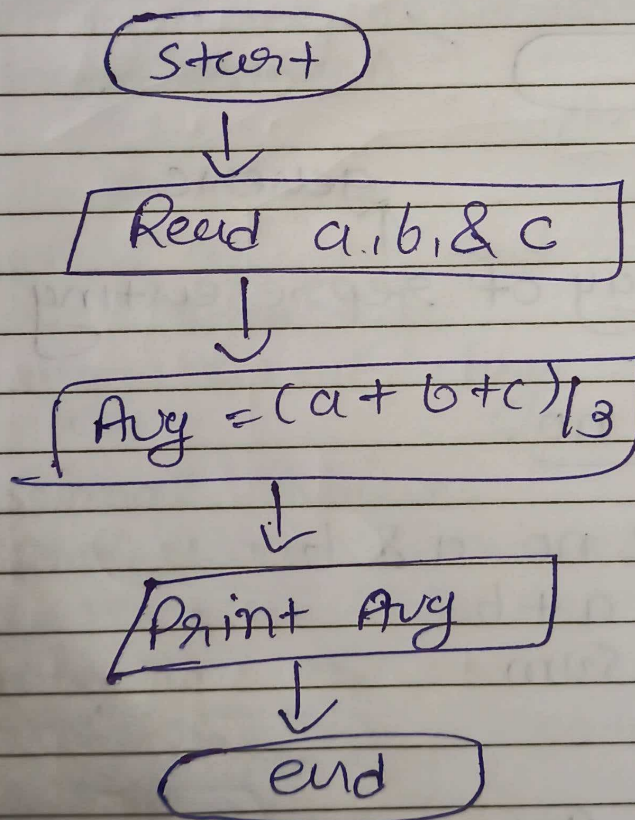 Start
Read a, b, & c
Avg = (a + b + c) / 3
Print Avg
end